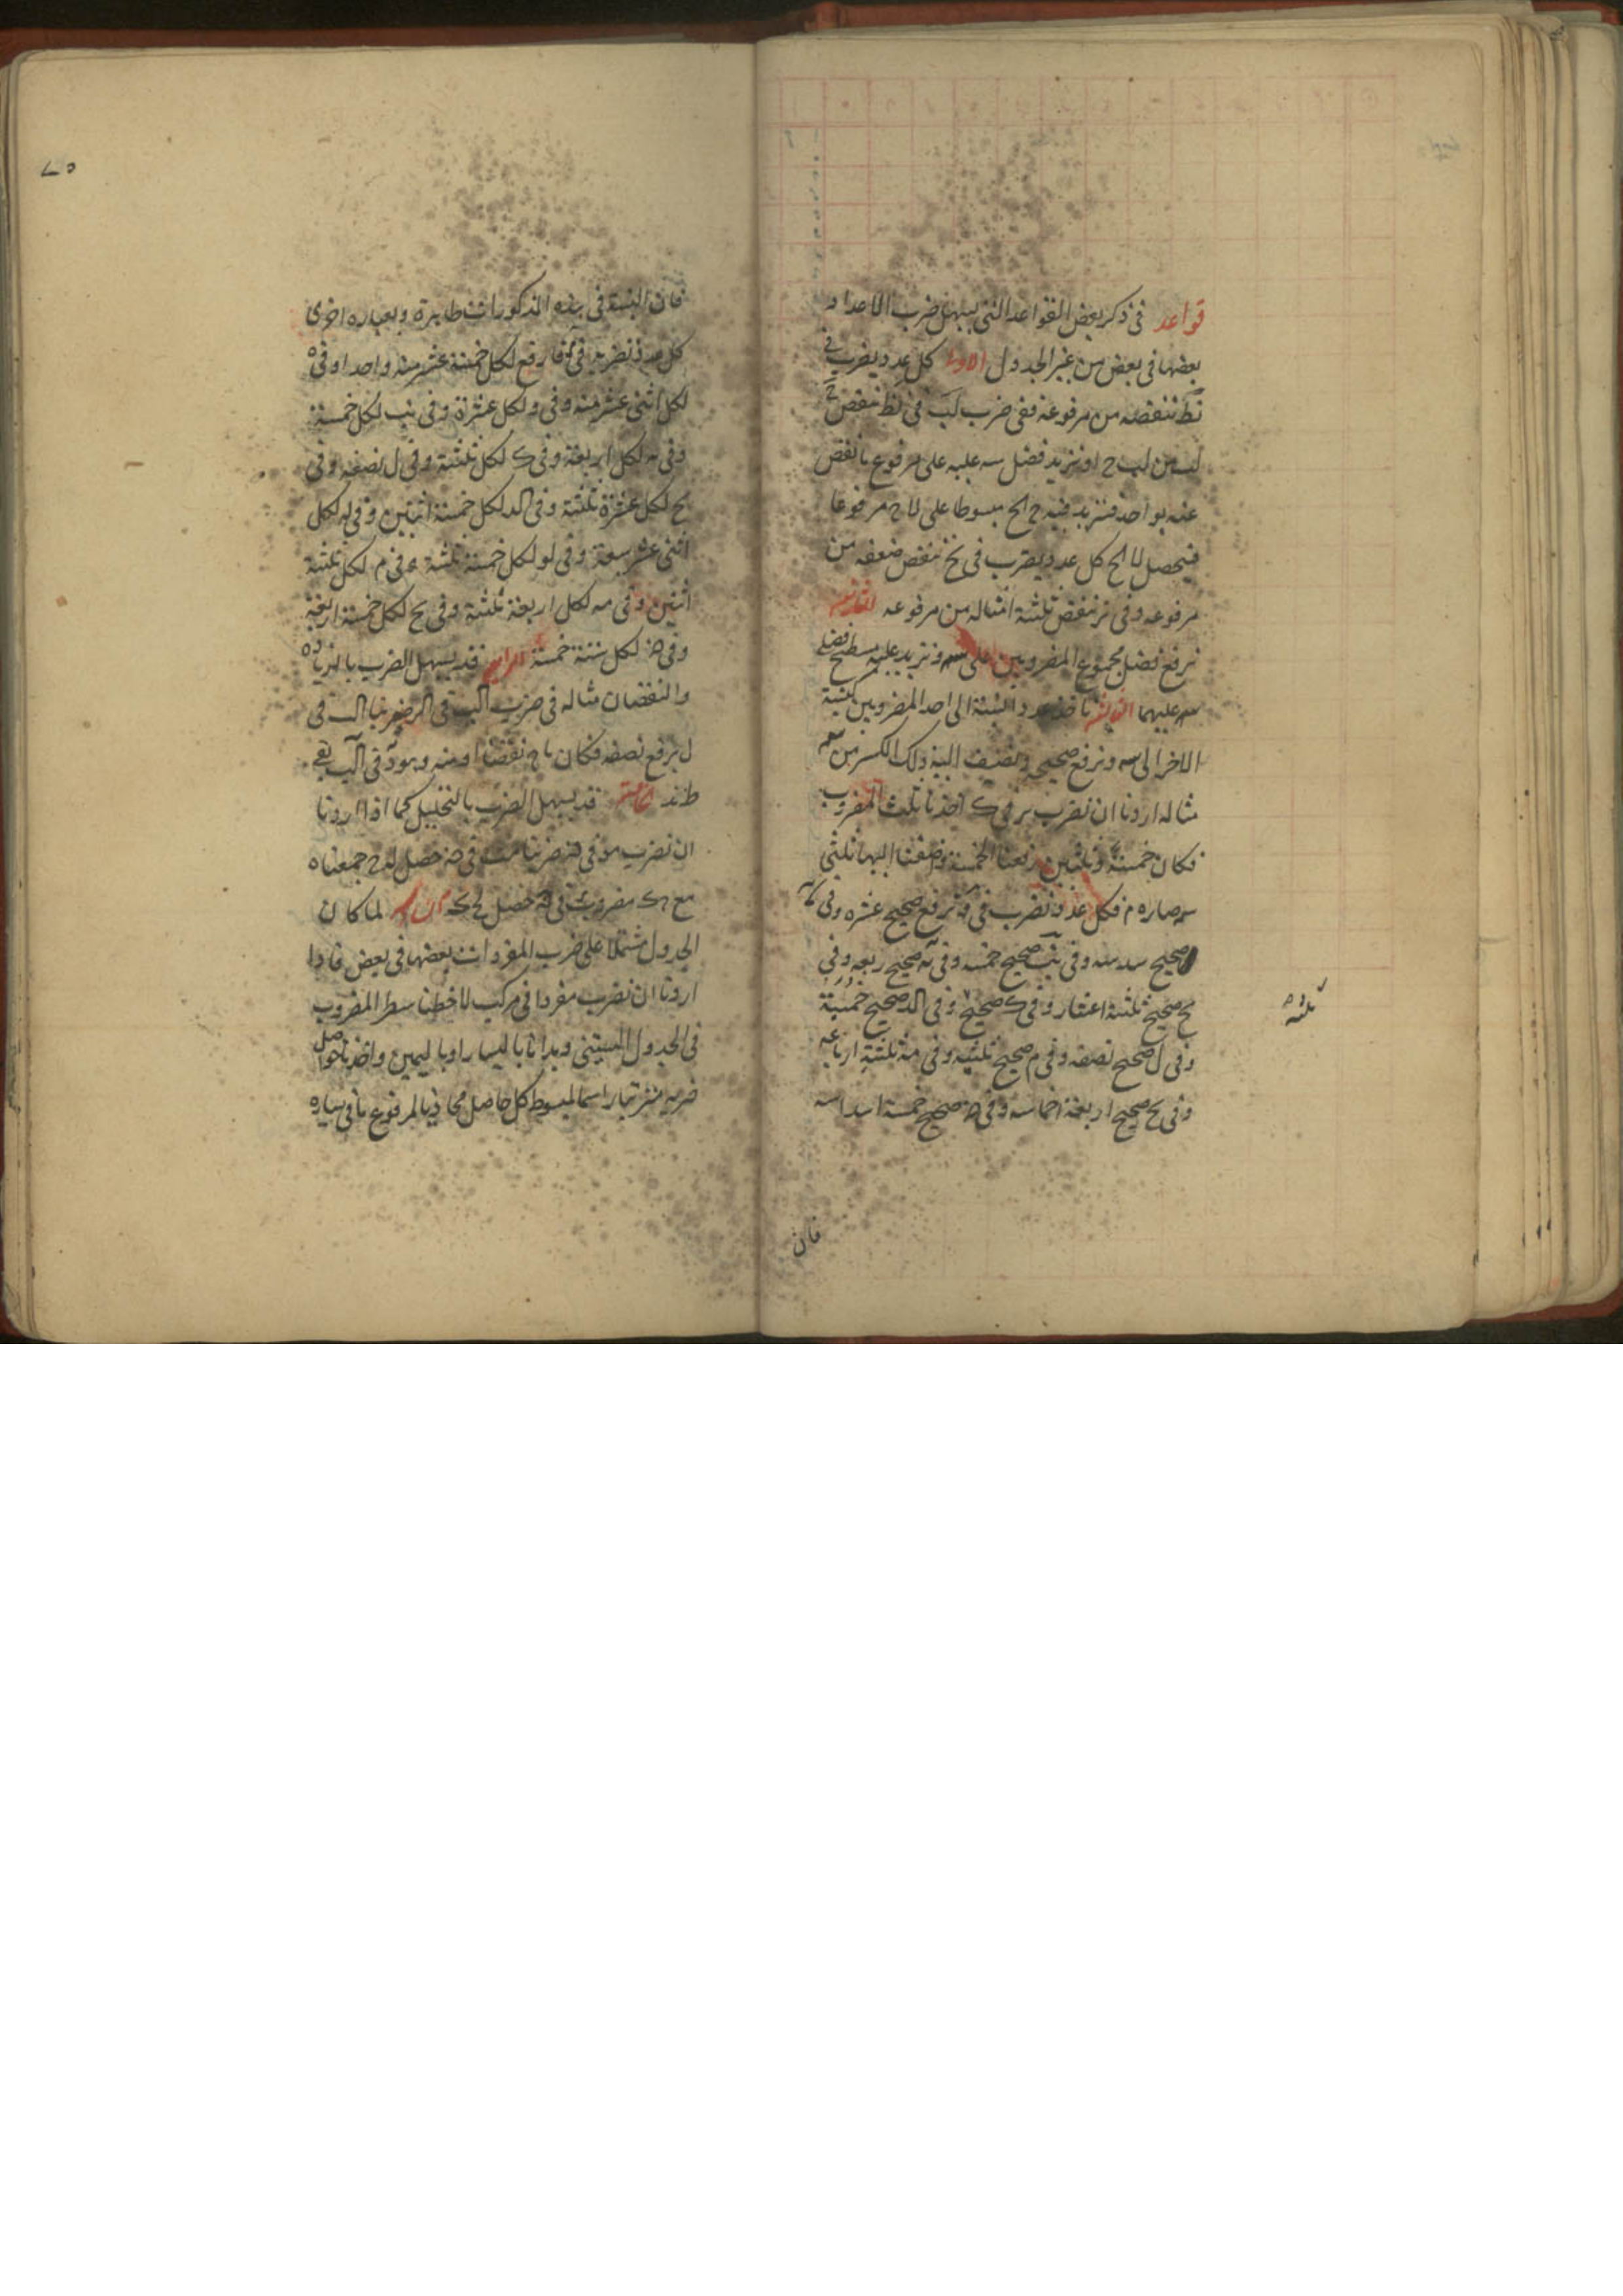 قواعد فى ذكر بعض القواعد التى يسهل ضرب الاعداد
بعضها فى بعض من غير الجدول الاولى كل عدد يضرب فى
نط ننقصه من مرفوعه ففى ضرب لب فى نط ننقص
لب من لب ح او نزيد فضل سه عليه على مرفوع ما نقص
عنه بواحد فنزيد فيه ح الح مبسوطا على لا ح مرفوعا
فيحصل لا الح كل عدد يضرب فى نح ننقص ضعفه من
مرفوعه وفى نز ننقص ثلثة امثاله من مرفوعه الثانية
نرفع فضل مجموع المضروبين على سه ونزيد عليه مسطح فضل
سه عليهما الثالثة ناخذ عدد النسبة الى احد المضروبين كنسبة
الاخر الى سه ونرفع صحيحه ونضيف اليه ذلك الكسر من سه
مثاله اردنا ان نضرب نز فى ك اخذنا ثلث المضروب
فكان خمسة وثلثين رفعنا الخمسة وضفنا اليها ثلثى
سه صار ه م فكل عدد نضرب فى و نرفع صحيح عشره وفى
صحيح سدسه وفى يب صحيح خمسه وفى يه صحيح ربعه وفى
يح صحيح ثلثة اعشار وفى ك صحيح وفى الد صحيح خمسية
ثلثه
وفى ل صحيح نصفه وفى م صحيح ثلثيه وفى مه ثلثة ارباعه
وفى مح صحيح اربعة اخماسه وفى ن صحيح خمسة اسداسه
فان
٧٥
فان النسبة فى هذه المذكورات ظاهرة وبعباره اخرى
كل عدد نضربه فى فارفع لكل خمسة عشر منه واحدا وفى ه
لكل اثنى عشر منه وفى و لكل عشرة وفى يب لكل خمسة
وفى يه لكل اربعة وفى ك لكل ثلثة وفى ل نصفه وفى
يح لكل عشرة ثلثة وفى الد لكل خمسة اثنين وفى له لكل
اثنى عشر سبعة وفى لو لكل خمسة ثلثة وفى م لكل ثلثة
اثنين وفى مه لكل اربعة ثلثة وفى مح لكل خمسة اربعة
وفى ن لكل ستة خمسة الرابع قد يسهل الضرب بالزياده
والنقصان مثاله فى ضرب الب فى الر ضربنا الب فى
ل برفع نصفه فكان ياح نقصنا و منه وهو فى الب بقى
ط ند الخامسة قد يسهل الضرب بالتحليل كما اذا اردنا
ان نضرب مو فى نز ضربنا فى حصل له ح جمعناه
مع ك مضروب فى حصل لح السادسة لما كان
الجدول مشتملا على ضرب المفردات بعضها فى بعض فاذا
اردنا ان نضرب مفردا فى مركب لاخطنا سطر المضروب
فى الجدول الستينى وبدانا باليسار او باليمين واخذنا حواصل
ضربه منزتبا راسما لمبسوط كل حاصل محاذيا لمرفوع ما فى يساره